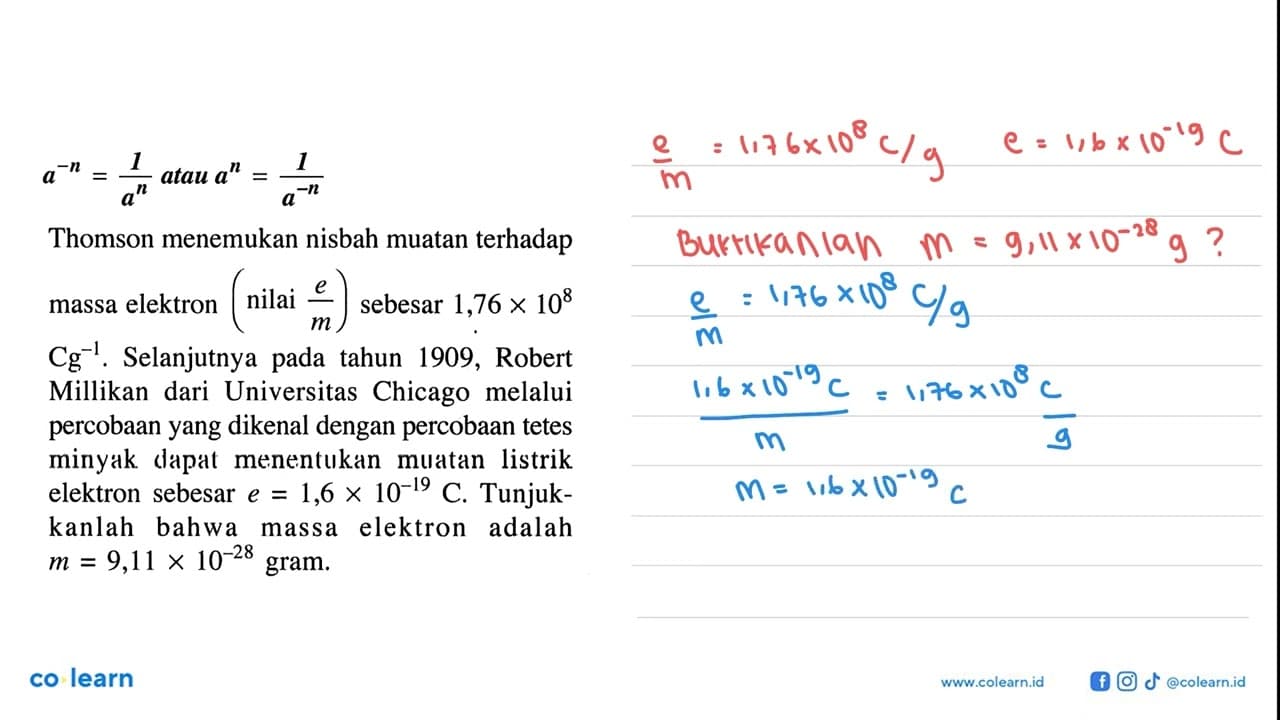 a⁻ⁿ = 1/aⁿ atau aⁿ = 1/a⁻ⁿ
Thomson menemukan nisbah muatan terhadap
massa elektron (nilai e/m) sebesar 1,76 × 10⁸
Cg⁻¹. Selanjutnya pada tahun 1909, Robert
Millikan dari Universitas Chicago melalui
percobaan yang dikenal dengan percobaan tetes
minyak dapat menentukan muatan listrik
elektron sebesar e = 1,6 × 10⁻¹⁹ C. Tunjuk-
kanlah bahwa massa elektron adalah
m = 9,11 × 10⁻²⁸ gram.
e/m = 1,76 × 10⁸ C/g e = 1,6 × 10⁻¹⁹ C
Buktikanlah m = 9,11 × 10⁻²⁸ g ?
e/m = 1,76 × 10⁸ C/g
1,6 × 10⁻¹⁹ C/m = 1,76 × 10⁸ C/g
m = 1,6 × 10⁻¹⁹ C
co learn
www.colearn.id @colearn.id